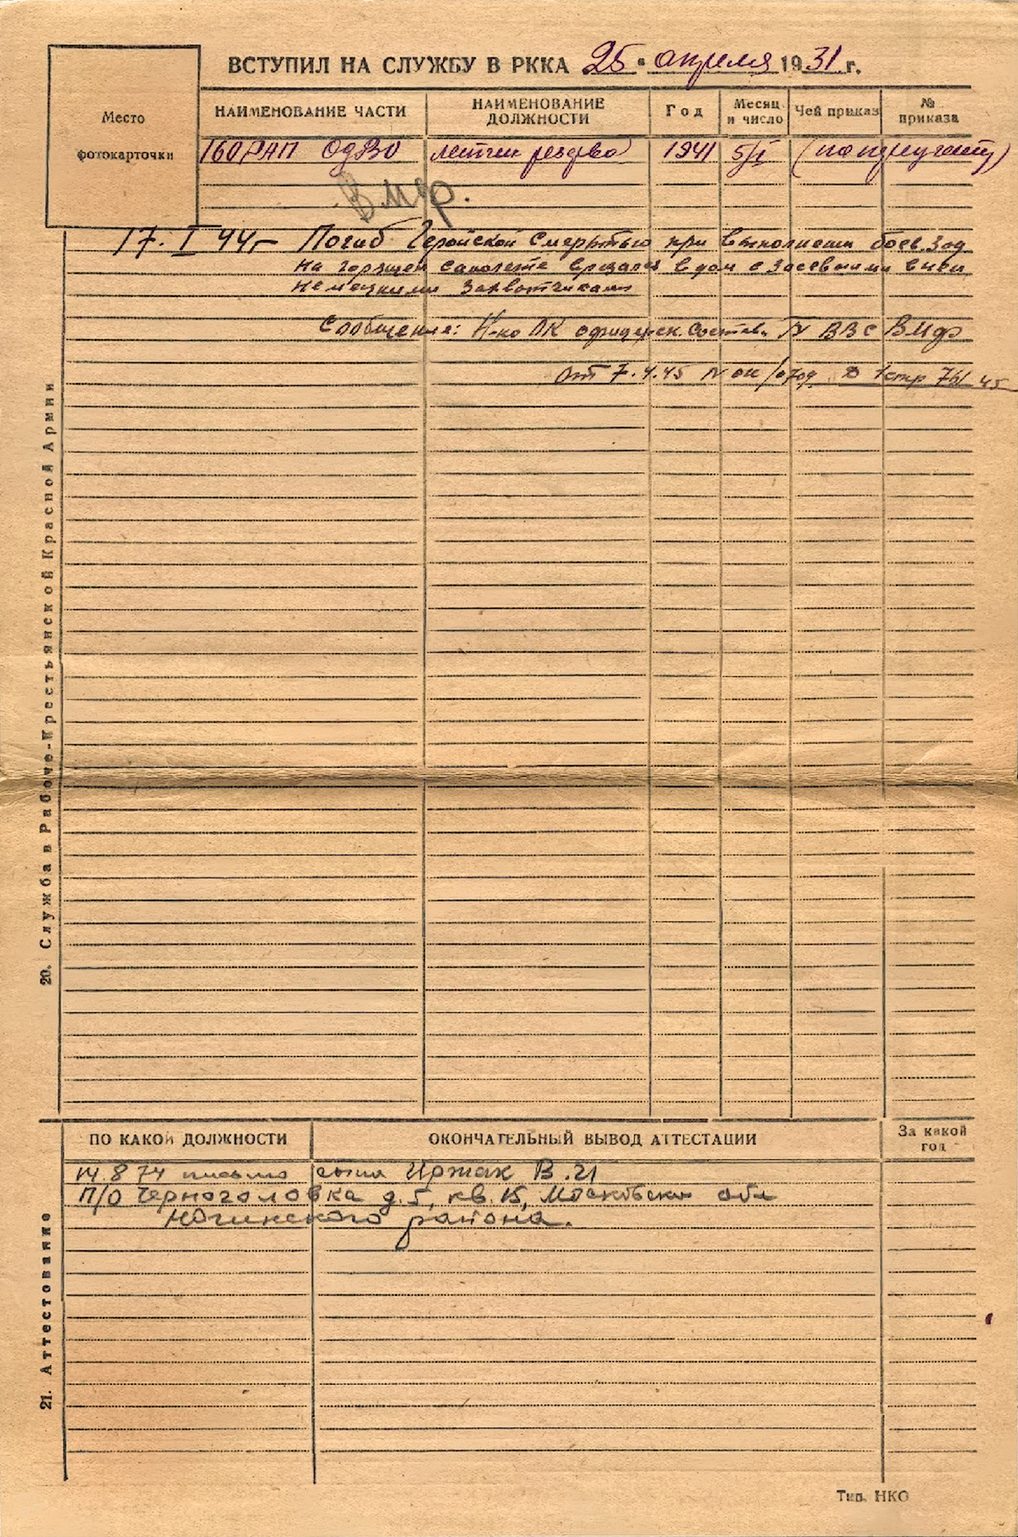 ВСТУПИЛ НА СЛУЖБУ В РККА 25 "апреля 1931 г.
Место
фотокарточки
НАИМЕНОВАНИЕ ЧАСТИ
НАИМЕНОВАНИЕ ДОЛЖНОСТИ
Год
Месяц и число
Чей приказ
№ приказа
160 РАП ОдВО летчик резерва 1941 5/I (по приучету)
ВМФ.
17. I 44 - Погиб Геройской смертью при выполнении боев. зад
На горящем самолете врезался в дом с засевшими в нем
Немецкими Захватчиками
Сообщение: Н-ка ОК офицерск. состава ВВС ВМФ
от 7.4.45 N
20. Служба в Рабоче-Крестьянской Красной Армии
ПО КАКОЙ ДОЛЖНОСТИ
ОКОНЧАТЕЛЬНЫЙ ВЫВОД АТТЕСТАЦИИ
За какой год
14.8 74 письмо сына Иржак В.И
П/О Черноголовка д. 5, кв. 15, Московской обл
Ногинского района.
21. Аттестование
Тип. НКО